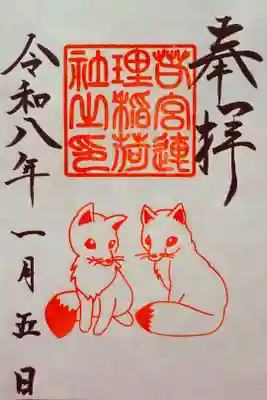 奉拝
苗宮連
理稲荷
社之印
令和八年一月五日